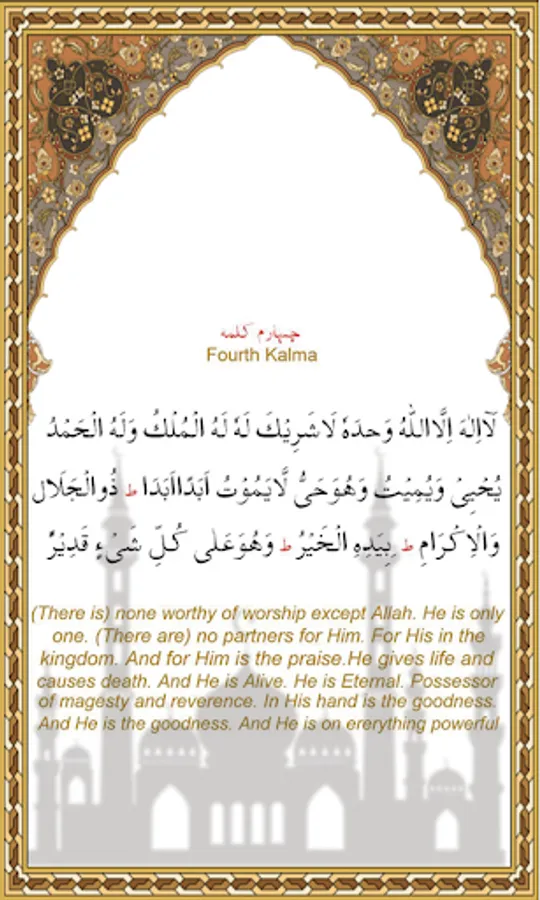 چہارم کلمہ
Fourth Kalma
لَآ اِلٰهَ اِلَّا اللهُ وَحدَهٗ لَا شَرِيْكَ لَهٗ لَهُ الْمُلْكُ وَلَهُ الْحَمْدُ
يُحْيِىْ وَيُمِيْتُ وَهُوَحَىٌّ لَّايَمُوْتُ اَبَدًااَبَدَا ط ذُوالْجَلَالِ
وَالْاِكْرَامِ ط بِيَدِهِ الْخَيْرُ ط وَهُوَعَلٰى كُلِّ شَىْءٍ قَدِيْرٌ
(There is) none worthy of worship except Allah. He is only
one. (There are) no partners for Him. For His in the
kingdom. And for Him is the praise.He gives life and
causes death. And He is Alive. He is Eternal. Possessor
of magesty and reverence. In His hand is the goodness.
And He is the goodness. And He is on ererything powerful